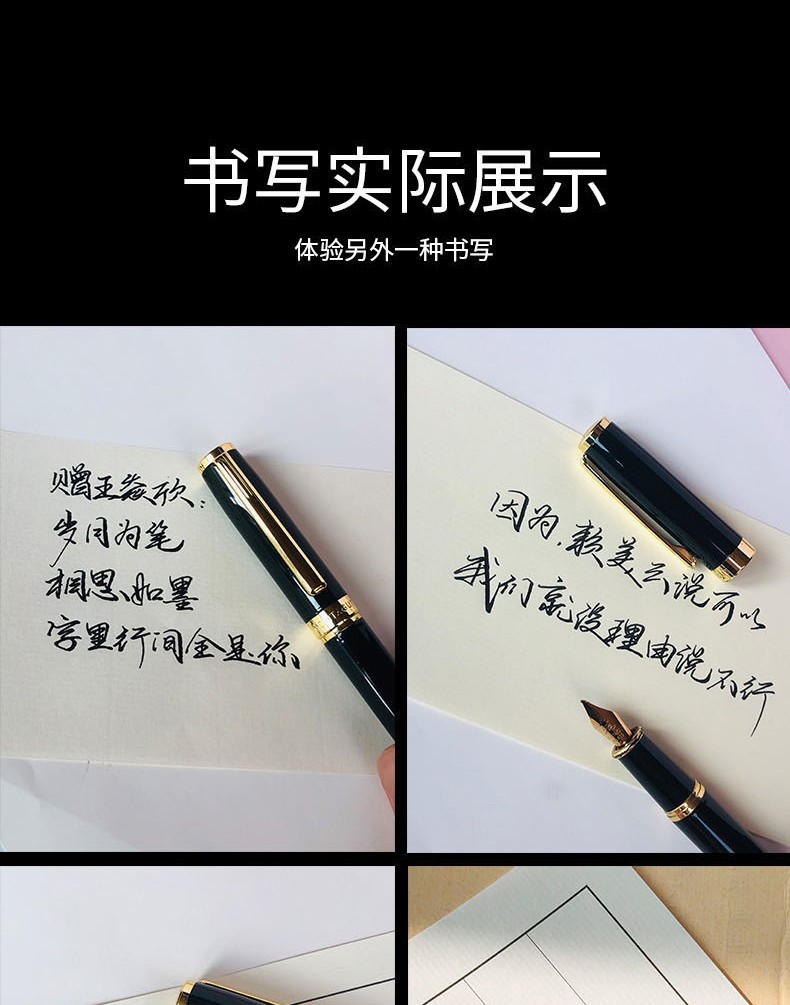 书写实际展示
体验另外一种书写
赠王淼欣:
岁月为笔
相思如墨
字里行间全是你
因为,赖美云说可以
我们就没理由说不行